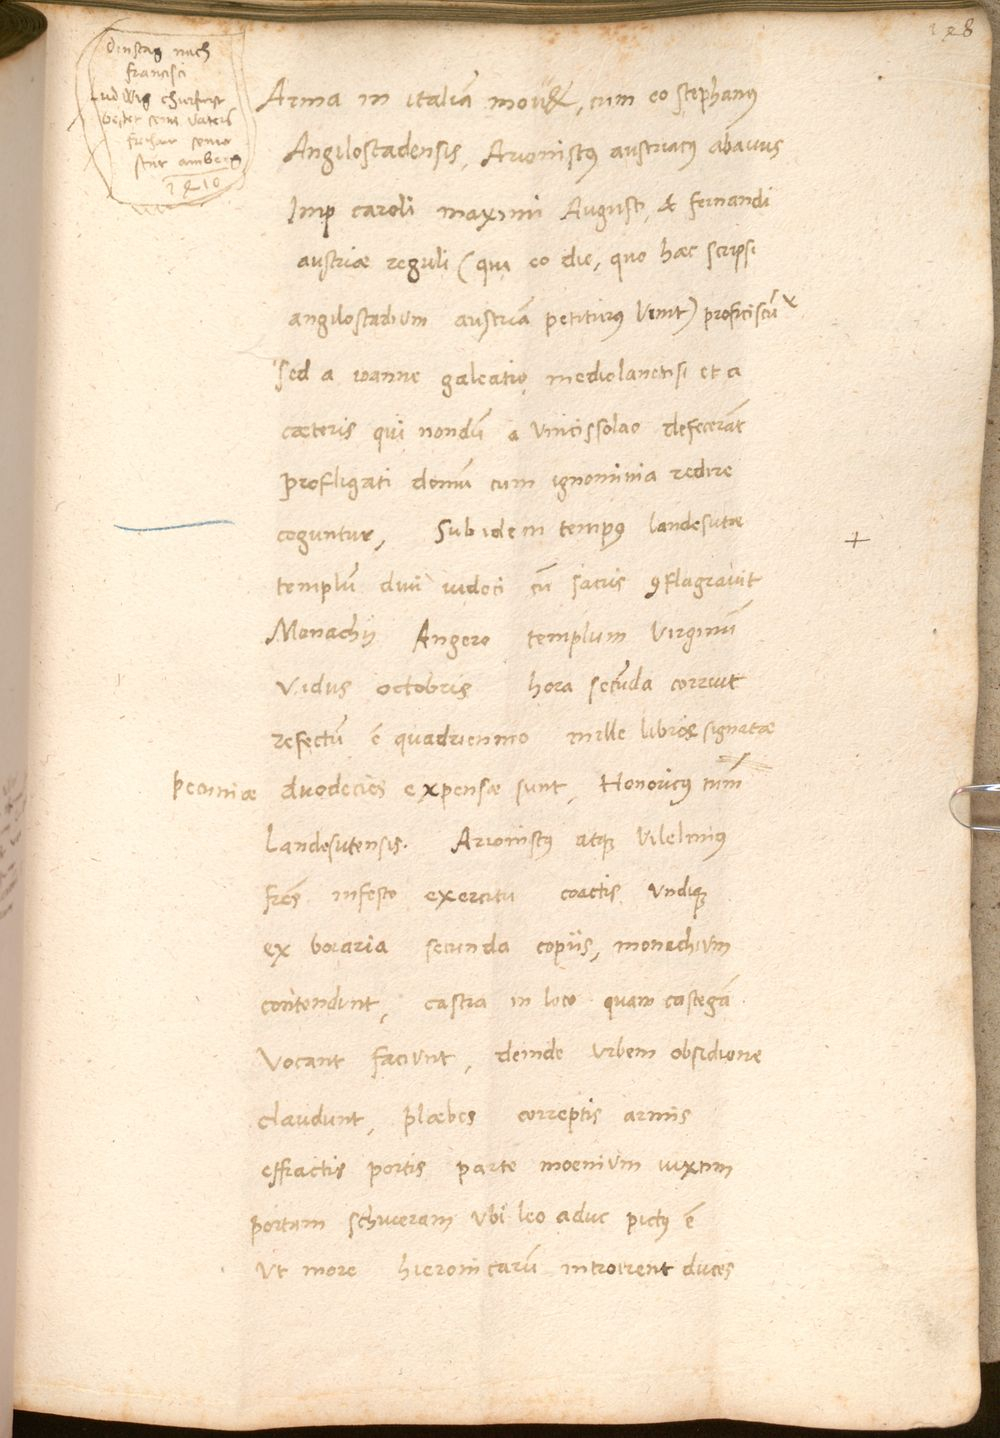 128
Dinstag nach
francisci
ludwig churfurst
seins vaters
amberg
1410
Arma in italiã mouet, cum eo stephanus
Angilostadensis, Arionistus austriacus abauus
Imp caroli maximi Augusti, & fernandi
austriae reguli (qui eo die, quo haec scripsi
angilostadium austriã petiturus venit) proficiscũ
Sed a ioanne galeatio mediolanensi et a
caeteris qui nondũ a Vincissolao defecerãt
profligati domũ cum ignominia redire
coguntur, Sub idem tempus landesutae
templũ diui iudoci cũ sacris 9flagrauit
Monachij Angero templum Virginũ
V idus octobris hora secũda corruit
refectũ ẽ quadriennio mille librae signatae
pecuniae duodecies expensae sunt, Honoricus tum
Landesutensis. Arionistus atque Vilelmus
frẽs infesto exercitu coactis vndique
ex boiaria secunda copiis, monachium
contendunt, castra in loco quam castegã
vocant faciunt, deinde vrbem obsidione
claudunt, plaebes correptis armis
effractis portis parte moenium iuxtim
portam schuueram vbi leo aduc pictus ẽ
vt more hieronicarũ introirent duces